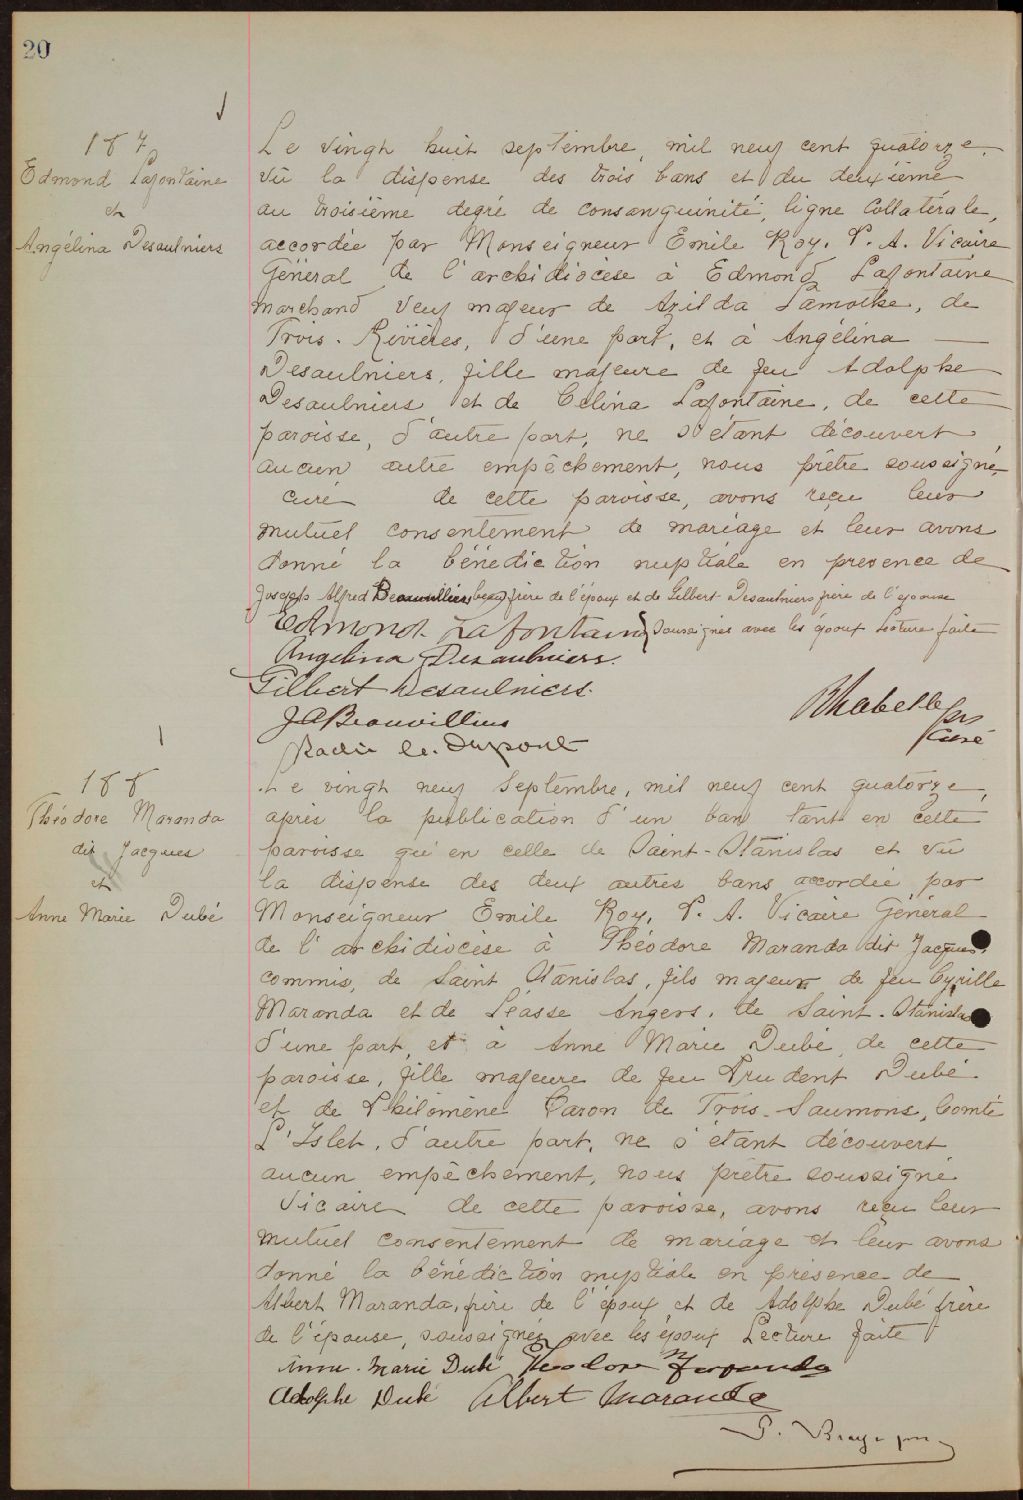 20
187
Edmond Lafontaine
et
Angélina Desaulniers
Le vingt huit septembre, mil neuf cent quatorze,
vû la dispense des trois bans et du deuxième
au troisième degré de consanguinité, ligne Collatérale,
accordée par Monseigneur Emile Roy, P. A. Vicaire
Général de l'archidiocèse à Edmond Lafontaine
marchand veuf majeur de Azilda Lamothe, de
Trois-Rivières, d'une part, et à Angélina
Desaulniers, fille majeure de feu Adolphe
Desaulniers et de Célina Lafontaine, de cette
paroisse, d'autre part, ne s'étant découvert
aucun autre empêchement, nous prêtre soussigné,
curé de cette paroisse, avons reçu leur
mutuel consentement de mariage et leur avons
donné la bénédiction nuptiale en presence de
Joseph Alfred Beauvillier, beau frère de l'époux et de Gilbert Desaulniers frère de l'épouse
Edmond Lafontaine soussignés avec les époux Lecture faite
Angelina Desaulniers.
Gilbert Desaulniers.
J A Beauvilliers
curé
188
Théodore Maranda
dit Jacques
et
Anne Marie Dubé
Le vingt neuf Septembre, mil neuf cent quatorze,
après la publication d'un ban tant en cette
paroisse qu'en celle de Saint-Stanislas et vû
la dispense des deux autres bans accordée par
Monseigneur Emile Roy, P. A. Vicaire Général
de l'archidiocèse à Théodore Maranda dit Jacques,
commis, de Saint Stanislas, fils majeur de feu Cyrille
Maranda et de Léasse Angers, de Saint-Stanislas
d'une part, et à Anne Marie Dubé, de cette
paroisse, fille majeure de feu Prudent Dubé
et de Philomène Caron de Trois-Saumons, Comté
L'Islet, d'autre part, ne s'étant découvert
aucun empêchement, nous prêtre soussigné
Vicaire de cette paroisse, avons reçu leur
mutuel consentement de mariage et leur avons
donné la bénédiction nuptiale en présence de
Albert Maranda, frère de l'époux et de Adolphe Dubé frère
de l'épouse, soussignés avec les époux Lecture faite
Anne-Marie Dubé Theodore Maranda
Adolphe Dubé Albert Maranda